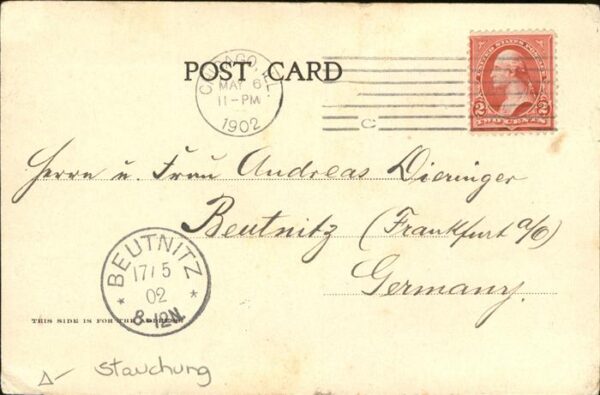 CHICAGO, ILL.
MAY 6
11-PM
1902
POST CARD
UNITED STATES POSTAGE
2 2
TWO CENTS
C
Herrn u. Frau Andreas Dieringer
Beutnitz (Frankfurt a/O)
Germany.
* BEUTNITZ *
17/5
02
8-12N.
THIS SIDE IS FOR THE ADDRESS
Stauchung